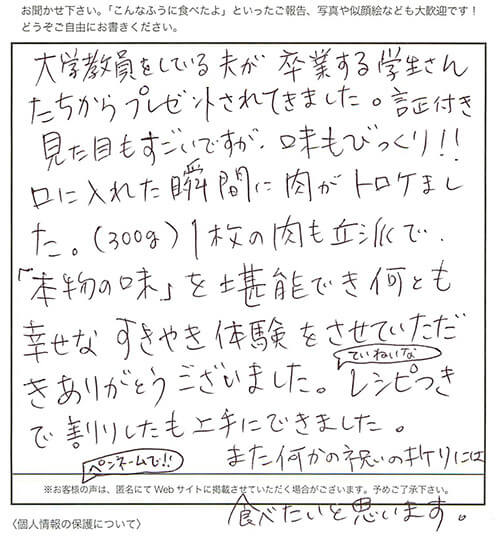 お聞かせ下さい。「こんなふうに食べたよ」といったご報告、写真や似顔絵なども大歓迎です！
どうぞご自由にお書きください。
大学教員をしている夫が卒業する学生さん
たちからプレゼントされてきました。証付き
見た目もすごいですが、味もびっくり!!
口に入れた瞬間に肉がトロケまし
た。(300g)1枚の肉も立派で、
「本物の味」を堪能でき何とも
幸せなすきやき体験をさせていただ
きありがとうございました。
ていねいな
レシピつき
で割りしたも上手にできました。
ペンネームで!!
また何かの祝いの折りには
※お客様の声は、匿名にてWebサイトに掲載させていただく場合がございます。予めご了承下さい。
食べたいと思います。
〈個人情報の保護について〉